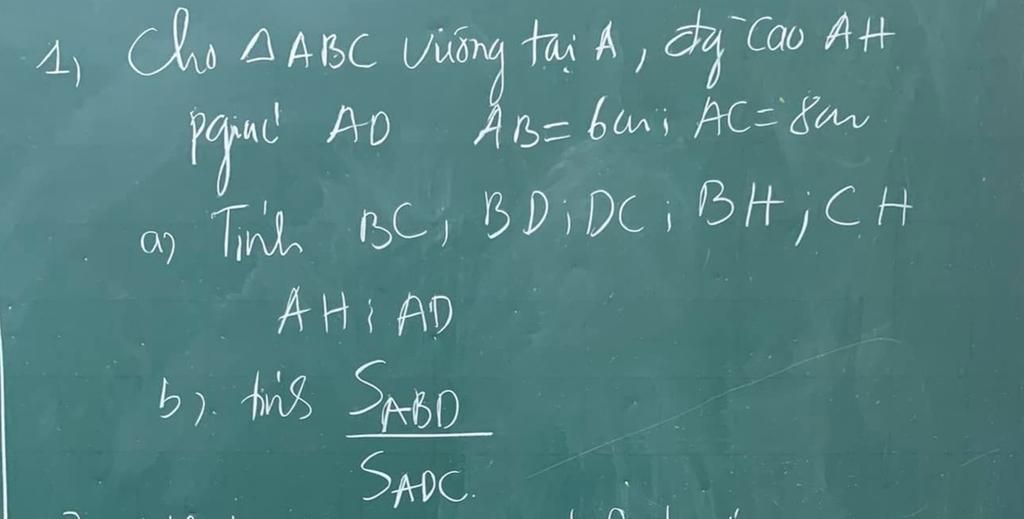 1, Cho △ABC vuông tại A, đg cao AH
pgiác AD AB = 6cm; AC = 8cm
a) Tính BC; BD; DC; BH; CH
AH; AD
b). tính S_ABD
S_ADC.